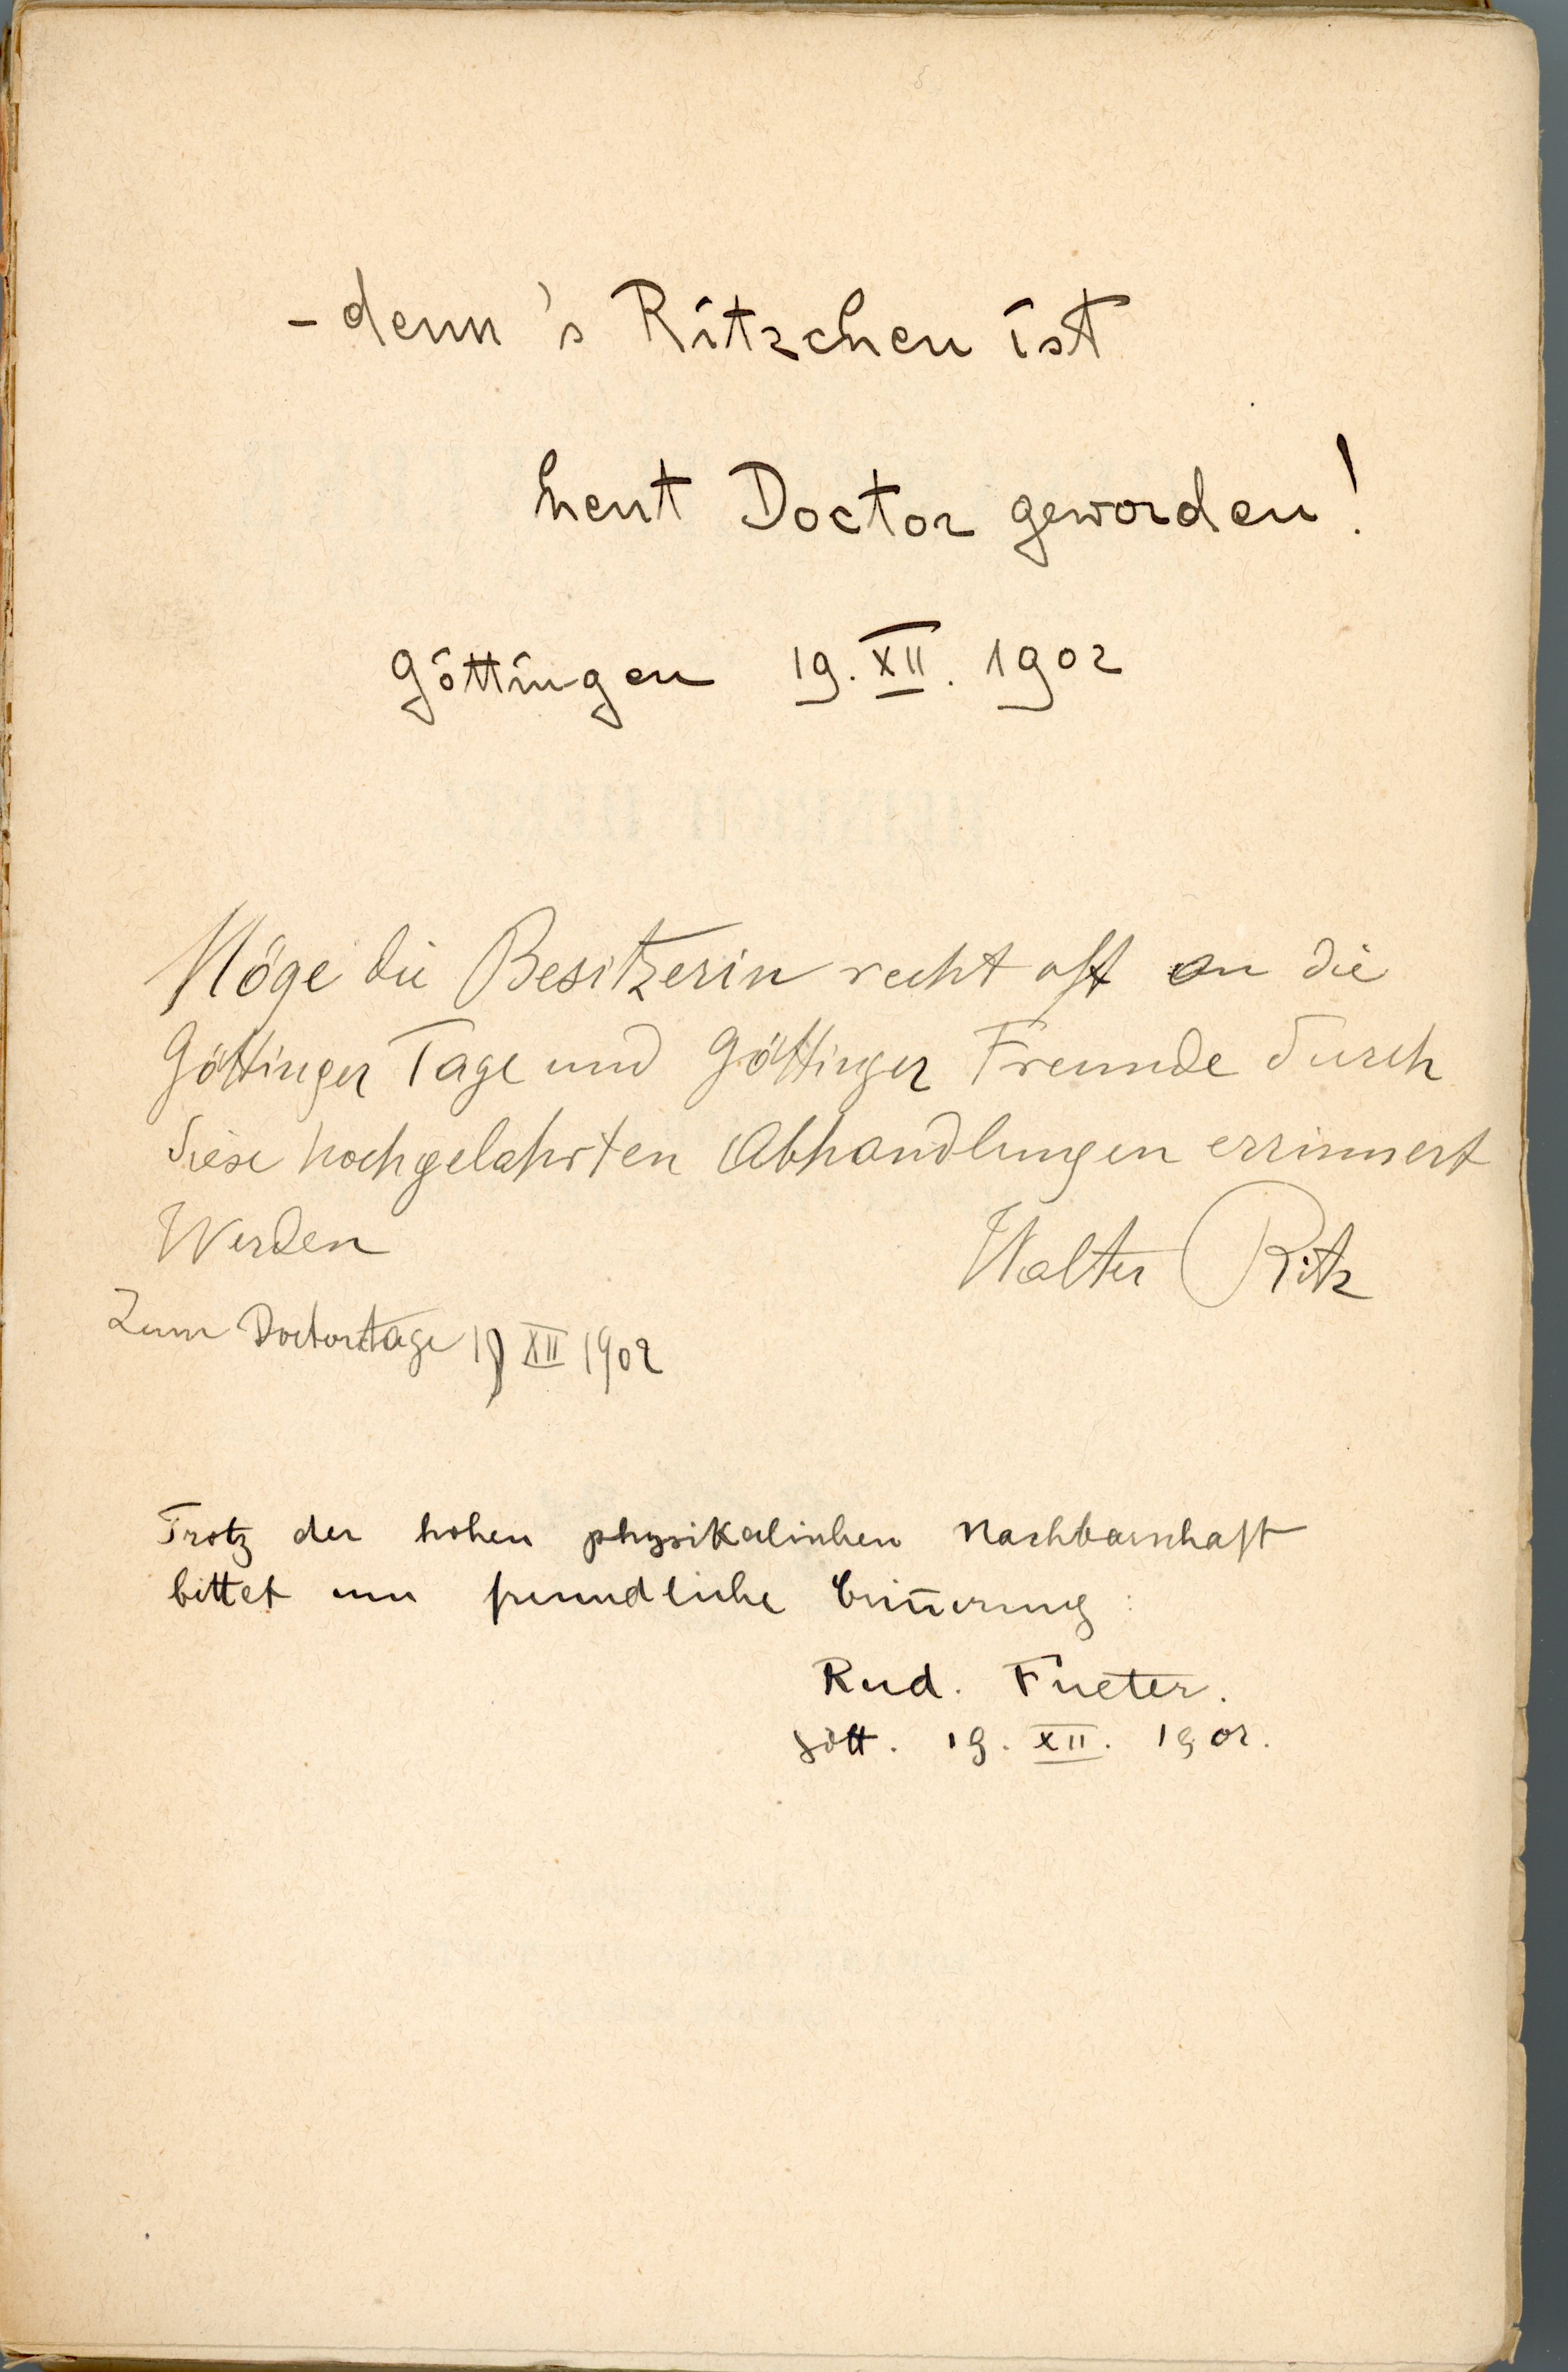 – denn 's Ritzchen ist
heut Doctor geworden!
Göttingen 19. XII. 1902
Möge die Besitzerin recht oft an die
Göttinger Tage und Göttinger Freunde durch
diese hochgelahrten Abhandlungen errinnert
Werden
Walter Ritz
Zum Doctortage 19 XII 1902
Trotz der hohen physikalischen Nachbarschaft
bittet um freundliche Erin̄erung:
Rud. Fueter.
Gött. 19. XII. 1902.